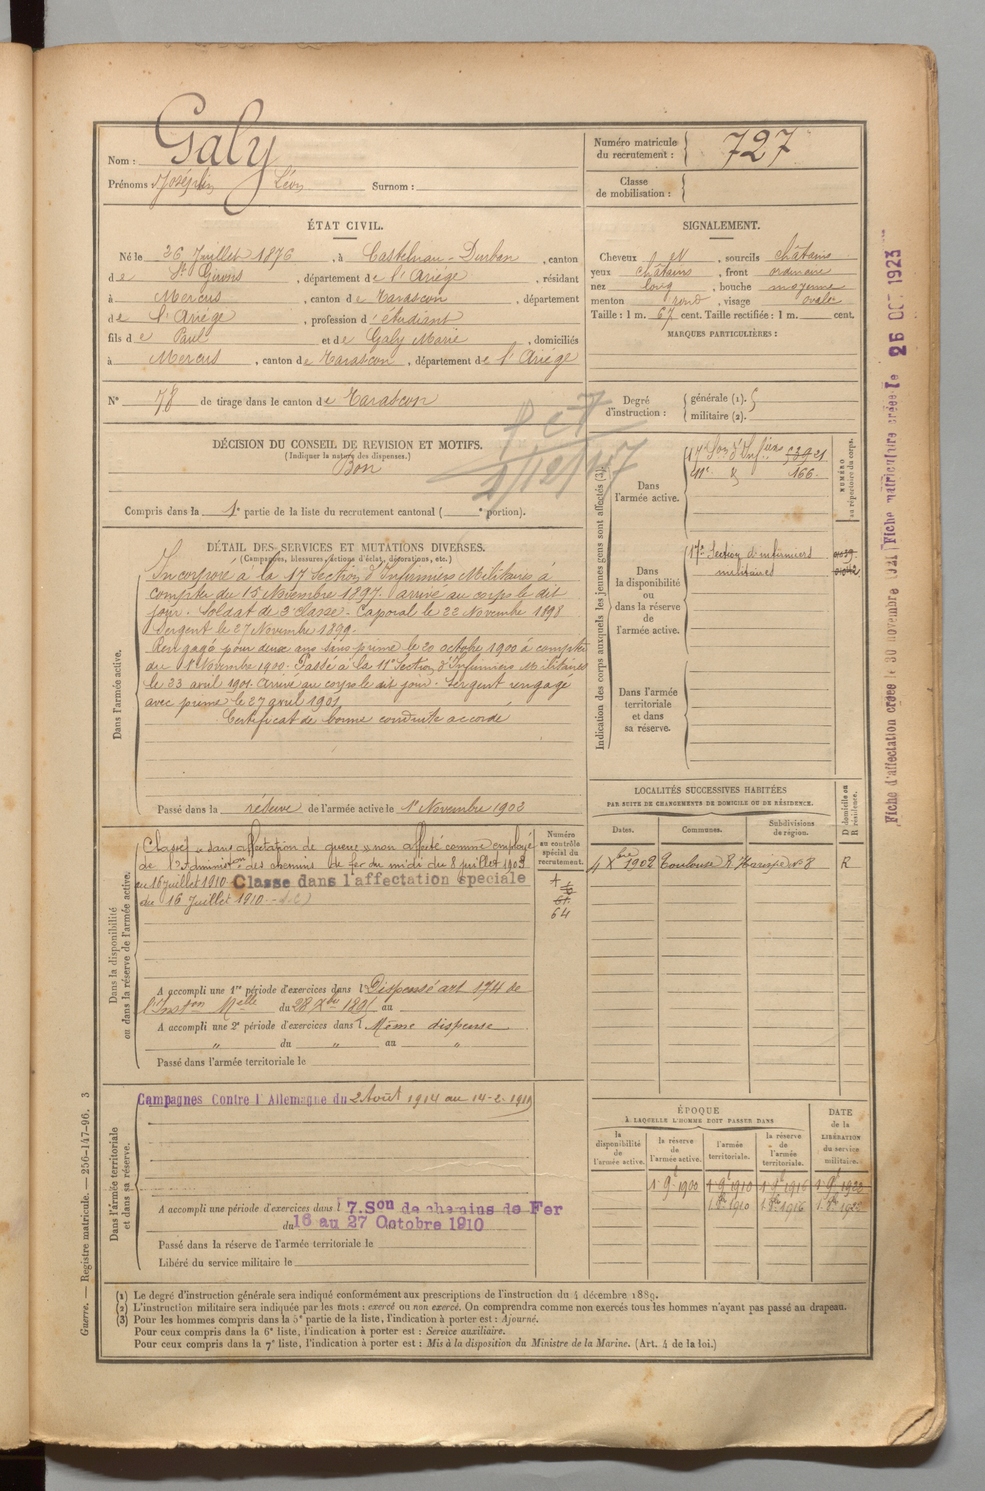 Nom : Galy
Prénoms : Joséphin Léon Surnom :
Numéro matricule du recrutement : 727
Classe de mobilisation :
ÉTAT CIVIL.
Né le 26 Juillet 1876, à Castelnau-Durban, canton
de St Girons, département de l'Ariège, résidant
à Mercus, canton de Tarascon, département
de l'Ariège, profession d'étudiant
fils de Paul et de Galy Marie, domiciliés
à Mercus, canton de Tarascon, département de l'Ariège
N° 78 de tirage dans le canton de Tarascon
DÉCISION DU CONSEIL DE REVISION ET MOTIFS.
(Indiquer la nature des dispenses.)
Bon
Compris dans la 1e partie de la liste du recrutement cantonal ( e portion).
SIGNALEMENT.
Cheveux , sourcils châtains
yeux châtains, front ordinaire
nez long, bouche moyenne
menton rond, visage ovale
Taille : 1 m. 67 cent. Taille rectifiée : 1 m. cent.
MARQUES PARTICULIÈRES :
Degré d'instruction : générale (1). militaire (2).
DÉTAIL DES SERVICES ET MUTATIONS DIVERSES.
(Campagnes, blessures, actions d'éclat, décorations, etc.)
Dans l'armée active.
Incorporé à la 17 Section d'Infirmiers Militaires à
compter du 15 Novembre 1897. Arrivé au corps le dit
jour. Soldat de 2e classe. Caporal le 22 Novembre 1898
Sergent le 27 Novembre 1899.
Rengagé pour deux ans sans prime le 20 octobre 1900 à compter
du 1 Novembre 1900. Passé à la 11e Section d'Infirmiers Militaires
le 23 avril 1901. Arrivé au corps le dit jour. Sergent rengagé
avec prime le 27 avril 1901
Certificat de bonne conduite accordé
Passé dans la réserve de l'armée active le 1er Novembre 1902
Indication des corps auxquels les jeunes gens sont affectés (3).
NUMÉRO au répertoire du corps.
Dans l'armée active.
17e Son d'Infiers 21
11e d° 166
Dans la disponibilité ou dans la réserve de l'armée active.
17e Section d'infirmiers
militaires
Dans l'armée territoriale et dans sa réserve.
Dans la disponibilité ou dans la réserve de l'armée active.
Classé « dans affectation de guerre » non affecté comme employé
de l'Admin[istra]on des chemins de fer du midi du 8 juillet 1903
au 16 juillet 1910 Classé dans l'affectation spéciale
du 16 Juillet 1910
Numéro au contrôle spécial du recrutement.
64
A accompli une 1re période d'exercices dans l' Dispensé art 174 de
l'Inston Melle du 28 Xbre 1895 au
A accompli une 2e période d'exercices dans l Même dispense
" du " au "
Passé dans l'armée territoriale le
LOCALITÉS SUCCESSIVES HABITÉES
PAR SUITE DE CHANGEMENTS DE DOMICILE OU DE RÉSIDENCE.
Dates. Communes. Subdivisions de région. D domicile ou R résidence.
4 Xbre 1902 Toulouse R. N° 8 R
Dans l'armée territoriale et dans sa réserve.
Campagnes Contre l'Allemagne du 2 Août 1914 au 14-2-1919
A accompli une période d'exercices dans l 7.Son de chemins de Fer
du 16 au 27 Octobre 1910
Passé dans la réserve de l'armée territoriale le
Libéré du service militaire le
ÉPOQUE
À LAQUELLE L'HOMME DOIT PASSER DANS
la disponibilité de l'armée active. la réserve de l'armée active. l'armée territoriale. la réserve de l'armée territoriale.
DATE de la LIBÉRATION du service militaire.
1 9 1900 1 9 1910 1 9 1916
1910 1916
(1) Le degré d'instruction générale sera indiqué conformément aux prescriptions de l'instruction du 4 décembre 1889.
(2) L'instruction militaire sera indiquée par les mots : exercé ou non exercé. On comprendra comme non exercés tous les hommes n'ayant pas passé au drapeau.
(3) Pour les hommes compris dans la 5e partie de la liste, l'indication à porter est : Ajourné.
Pour ceux compris dans la 6e liste, l'indication à porter est : Service auxiliaire.
Pour ceux compris dans la 7e liste, l'indication à porter est : Mis à la disposition du Ministre de la Marine. (Art. 4 de la loi.)
Guerre. — Registre matricule. — 256-147-96. 3
Fiche d'affectation créée le 30 novembre
Fiche matriculaire créée le 26 OCT 1923